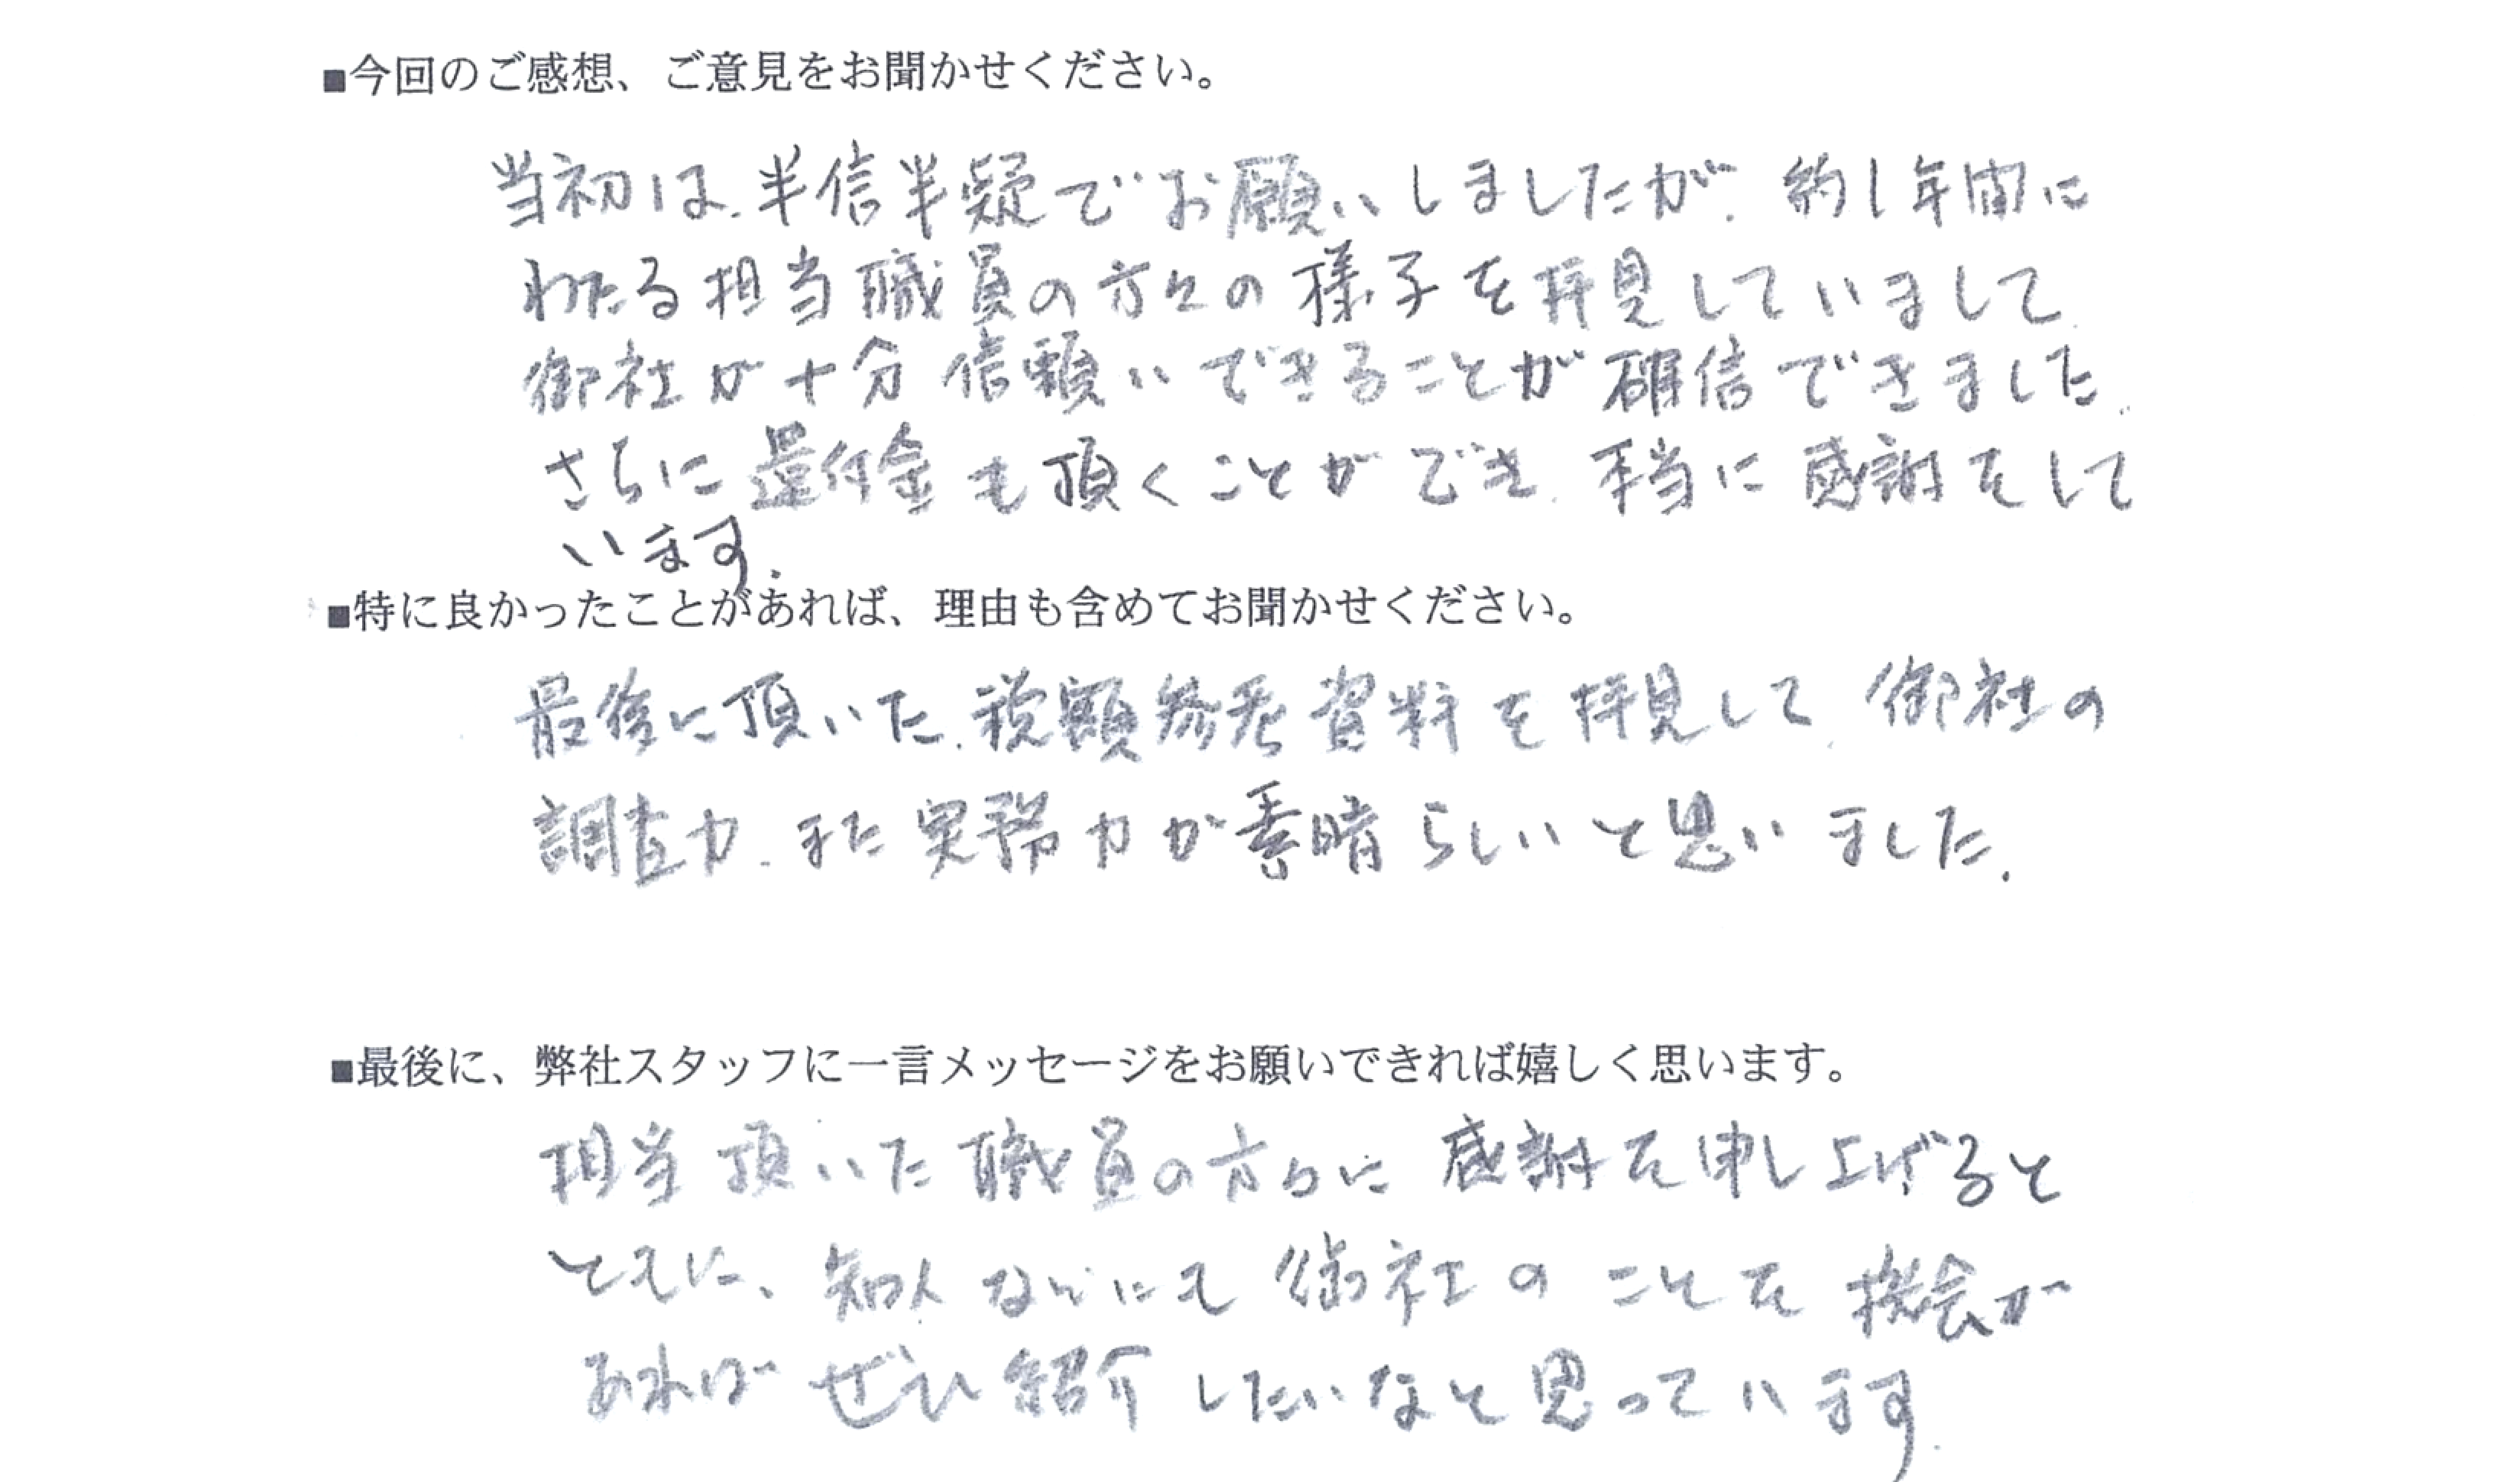 ■今回のご感想、ご意見をお聞かせください。
当初は、半信半疑でお願いしましたが、約1年間に
わたる担当職員の方々の様子を拝見していまして、
御社が十分信頼いできることが確信できました。
さらに還付金も頂くことができ、本当に感謝をして
います。
■特に良かったことがあれば、理由も含めてお聞かせください。
最後に頂いた、税額参考資料を拝見して、御社の
調査力、また実務力が素晴らしいと思いました。
■最後に、弊社スタッフに一言メッセージをお願いできれば嬉しく思います。
担当頂いた職員の方々に感謝を申し上げると
ともに、知人などにも御社のことを機会が
あればぜひ紹介したいなと思っています。